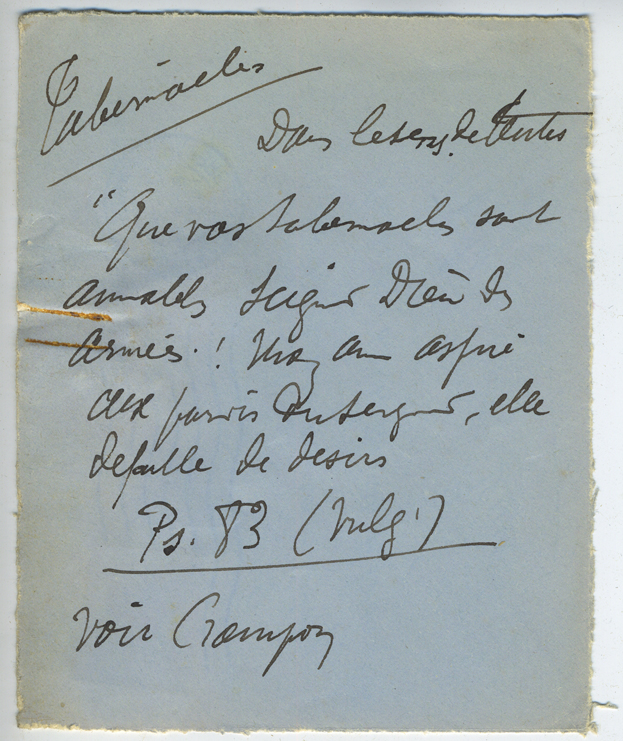 Tabernacles
Dans le sens de tentes
"Que vos tabernacles sont
aimables Seigneur Dieu des
Armées ! Mon âme aspire
aux parvis du Seigneur, elle
defaille de desirs
Ps. 83 (Vulg.)
Voir Crampon